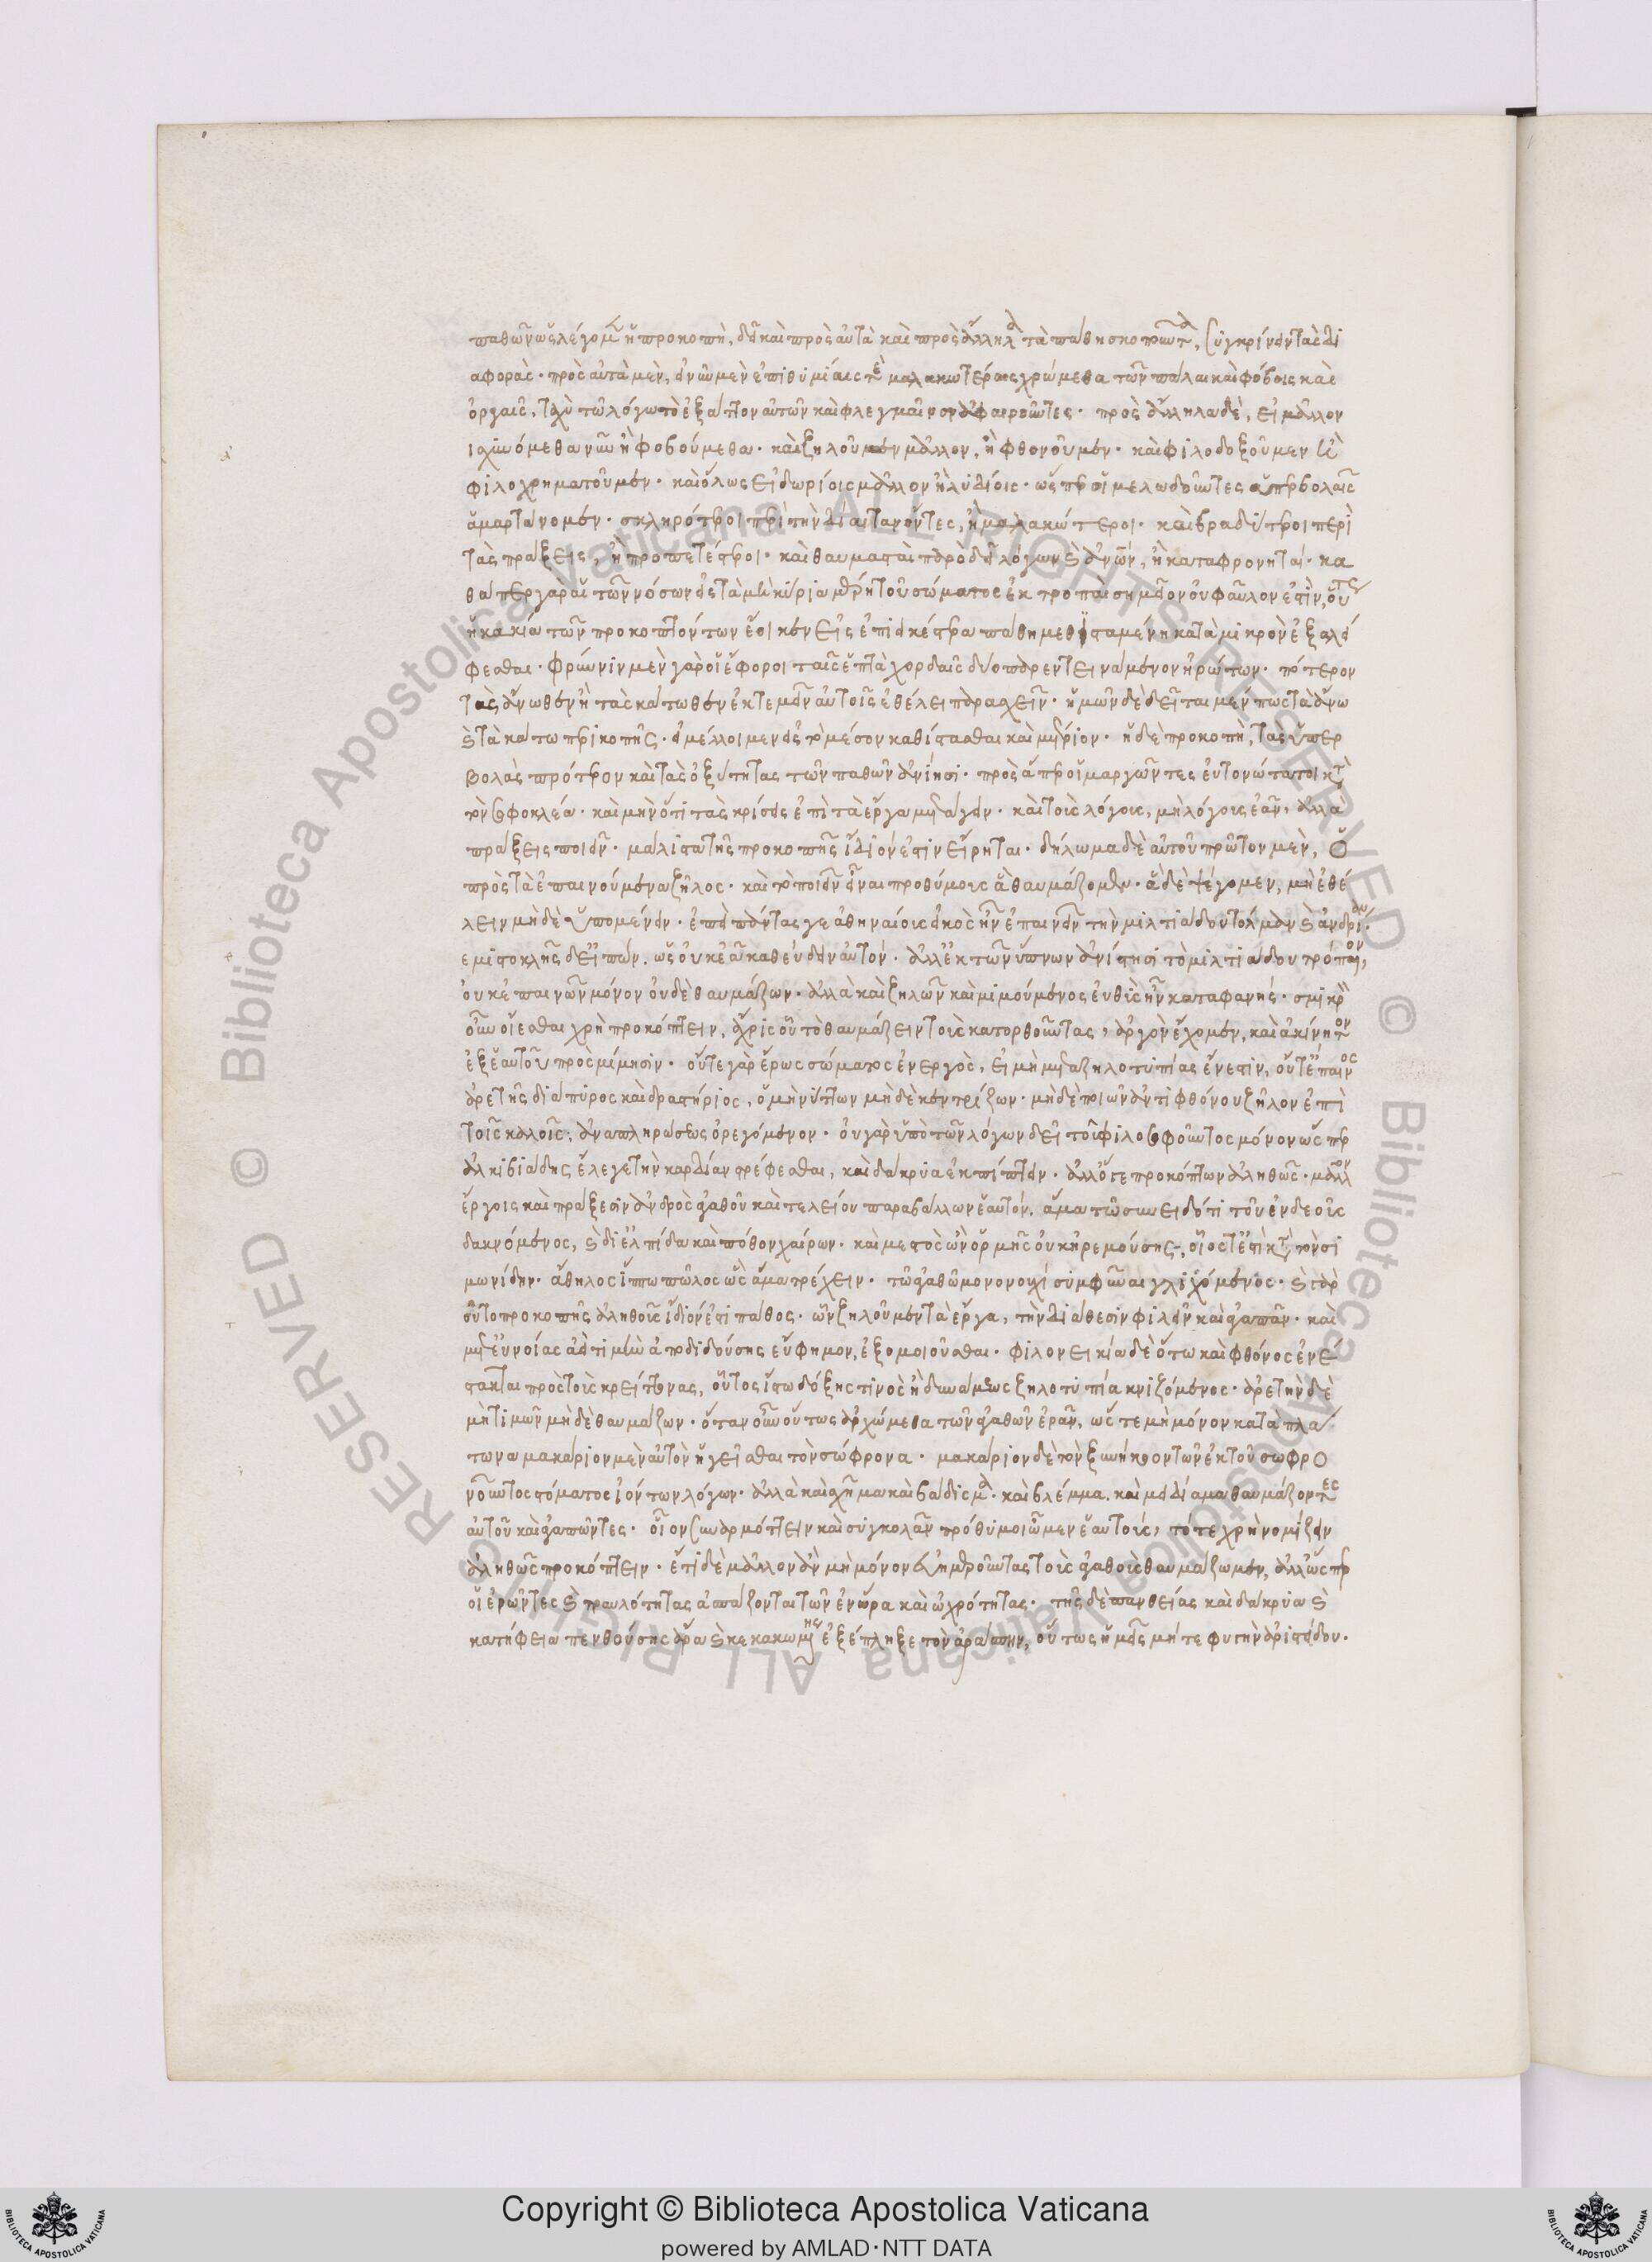 παθῶν ὡς λέγομεν ἡ προκοπὴ, δεῖ καὶ πρὸς αὐτὰ καὶ πρὸς ἄλληλα τὰ πάθη σκοποῦντας, συγκρίνειν τὰς δι
αφοράς· πρὸς αὐτὰ μὲν, εἰ νῦν μὲν ἐπιθυμίαις τε μαλακωτέραις χρώμεθα τῶν πάλαι καὶ φόβοις καὶ
ὀργαῖς, ταχὺ τῷ λόγῳ τὸ ἐξάπτον αὐτῶν καὶ φλεγμαῖνον ἀφαιροῦντες· πρὸς ἄλληλα δὲ, εἰ μᾶλλον
αἰσχυνόμεθα νῦν ἢ φοβούμεθα· καὶ ζηλοῦμεν μᾶλλον, ἢ φθονοῦμεν· καὶ φιλοδοξοῦμεν ἢ
φιλοχρηματοῦμεν· καὶ ὅλως εἰ δωρίοις μᾶλλον ἢ λυδίοις· ὥσπερ οἱ μελωδοῦντες ὑπερβολαῖς
ἁμαρτάνομεν· σκληρότεροι περὶ τὴν δίαιταν ὄντες, ἢ μαλακώτεροι· καὶ βραδύτεροι περὶ
τὰς πράξεις, ἢ προπετέστεροι· καὶ θαυμασταὶ παρὸ δεῖ λόγων καὶ ἀνδρῶν, ἢ καταφρονηταί· κα
θάπερ γὰρ αἱ τῶν νόσων εἰς τὰ μὴ κύρια μέρη τοῦ σώματος ἐκτροπαὶ σημεῖον οὐ φαῦλον ἐστὶν, οὕτως
ἡ κακία τῶν προκοπτόντων ἔοικεν εἰς ἐπιεικέστερα πάθη μεθισταμένη κατὰ μικρὸν ἐξαλεί
φεσθαι· φρῦνιν μὲν γὰρ οἱ ἔφοροι ταῖς ἑπτὰ χορδαῖς δύο παρεντεινάμενον ἠρώτων· πότερον
τὰς ἄνωθεν ἢ τὰς κάτωθεν ἐκτεμεῖν αὐτοῖς ἐθέλει παρασχεῖν· ἡμῶν δὲ δεῖται μέν πως τὰ ἄνω
καὶ τὰ κάτω περικοπῆς· εἰ μέλλοιμεν εἰς τὸ μέσον καθίστασθαι καὶ μέτριον· ἡ δὲ προκοπὴ, τὰς ὑπερ
βολὰς πρότερον καὶ τὰς ὀξύτητας τῶν παθῶν ἀνίησι· πρὸς ἅπερ οἱ μαργῶντες εὐτονώτατοι κατὰ
τὸν σοφοκλέα· καὶ μὴν ὅτι τὰς κρίσεις ἐπὶ τὰ ἔργα μετάγειν· καὶ τοὺς λόγους, μὴ λόγους ἐᾶν, ἀλλὰ
πράξεις ποιεῖν· μάλιστα τῆς προκοπῆς ἴδιόν ἐστιν εἴρηται· δήλωμα δὲ αὐτοῦ πρῶτον μὲν, ὁ
πρὸς τὰ ἐπαινούμενα ζῆλος· καὶ τὸ ποιεῖν εἶναι προθύμους ἃ θαυμάζομεν· ἃ δὲ ψέγομεν, μὴ ἐθέ
λειν μηδὲ ὑπομένειν· ἐπεὶ πάντας γε ἀθηναίους εἰκὸς ἦν ἐπαινεῖν τὴν μιλτιάδου τόλμαν καὶ ἀνδρίαν·
θεμιστοκλῆς δ' εἰπὼν· ὡς οὐκ ἐᾶ καθεύδειν αὐτόν· ἀλλ' ἐκ τῶν ὕπνων ἀνίστησι τὸ μιλτιάδου τρόπαιον,
οὐκ ἐπαινῶν μόνον οὐδὲ θαυμάζων· ἀλλὰ καὶ ζηλῶν καὶ μιμούμενος εὐθὺς ἦν καταφανής· σμικρὸν
οὖν οἴεσθαι χρὴ προκόπτειν, ἄχρις οὗ τὸ θαυμάζειν τοὺς κατορθοῦντας, ἀργὸν ἔχομεν, καὶ ἀκίνητον
ἐξ ἑαυτοῦ πρὸς μίμησιν· οὔτε γὰρ ἔρως σώματος ἐνεργὸς, εἰ μὴ μετὰ ζηλοτυπίας ἔνεστιν, οὔτ' ἔπαινος
ἀρετῆς διάπυρος καὶ δραστήριος, ὁ μὴ νύττων μηδὲ κεντρίζων· μηδὲ ποιῶν ἀντὶ φθόνου ζῆλον ἐπὶ
τοῖς καλοῖς, ἀναπληρώσεως ὀρεγόμενον· οὐ γὰρ ὑπὸ τῶν λόγων δεῖ τοῦ φιλοσοφοῦντος μόνον ὥσπερ
ἀλκιβιάδης ἔλεγε τὴν καρδίαν στρέφεσθαι, καὶ δάκρυα ἐκπίπτειν· ἀλλ' ὅγε προκόπτων ἀληθῶς· μᾶλλον
ἔργοις καὶ πράξεσιν ἀνδρὸς ἀγαθοῦ καὶ τελείου παραβάλλων ἑαυτόν· ἅμα τῷ συνειδότι τοῦ ἐνδεοῦς
δακνόμενος, καὶ δι' ἐλπίδα καὶ πόθον χαίρων· καὶ μεστὸς ὢν ὁρμῆς οὐκ ἠρεμούσης, οἷός τ' ἐστὶ κατὰ τὸν σι
μωνίδην· ἄθηλος ἵππω πῶλος ὣς ἅμα τρέχειν· τῷ ἀγαθῷ μονονουχί συμφῦναι γλιχόμενος· καὶ γὰρ
τοῦτο προκοπῆς ἀληθοῦς ἴδιόν ἐστι πάθος· ὧν ζηλοῦμεν τὰ ἔργα, τὴν διάθεσιν φιλεῖν καὶ ἀγαπᾶν· καὶ
μετ' εὐνοίας ἀεὶ τιμὴν ἀποδιδούσης εὔφημον, ἐξομοιοῦσθαι· φιλονεικία δὲ ὅτω καὶ φθόνος ἐνέ
στακται πρὸς τοὺς κρείττονας, οὗτος ἴστω δόξης τινὸς ἢ δυνάμεως ζηλοτυπία κνιζόμενος· ἀρετὴν δὲ
μὴ τιμῶν μηδὲ θαυμάζων· ὅταν οὖν οὕτως ἀρχώμεθα τῶν ἀγαθῶν ἐρᾶν, ὥστε μὴ μόνον κατὰ πλά
τωνα μακάριον μὲν αὐτὸν ἡγεῖσθαι τὸν σώφρονα· μακάριον δὲ τὸν ξυνήκοον τῶν ἐκ τοῦ σωφρο
νοῦντος στόματος ἰόντων λόγων· ἀλλὰ καὶ σχῆμα καὶ βάδισμα· καὶ βλέμμα καὶ μειδίαμα θαυμάζοντες
αὐτοῦ καὶ ἀγαπῶντες· οἷον συναρμόττειν καὶ συγκολλᾶν πρόθυμοι ὦμεν ἑαυτούς, τότε χρὴ νομίζειν
ἀληθῶς προκόπτειν· ἔτι δὲ μᾶλλον ἂν μὴ μόνον εὐημεροῦντας τοὺς ἀγαθοὺς θαυμάζωμεν, ἀλλ' ὥσπερ
οἱ ἐρῶντες καὶ τραυλότητας ἀσπάζονται τῶν ἐν ὥρα καὶ ὠχρότητας· τῆς δὲ πανθείας καὶ δάκρυα καὶ
κατήφεια πενθούσης ἄρα καὶ κεκακωμένης ἐξέπληξε τὸν ἀράσπην, οὕτως ἡμεῖς μήτε φυγὴν ἀριστείδου·
Copyright © Biblioteca Apostolica Vaticana
powered by AMLAD·NTT DATA